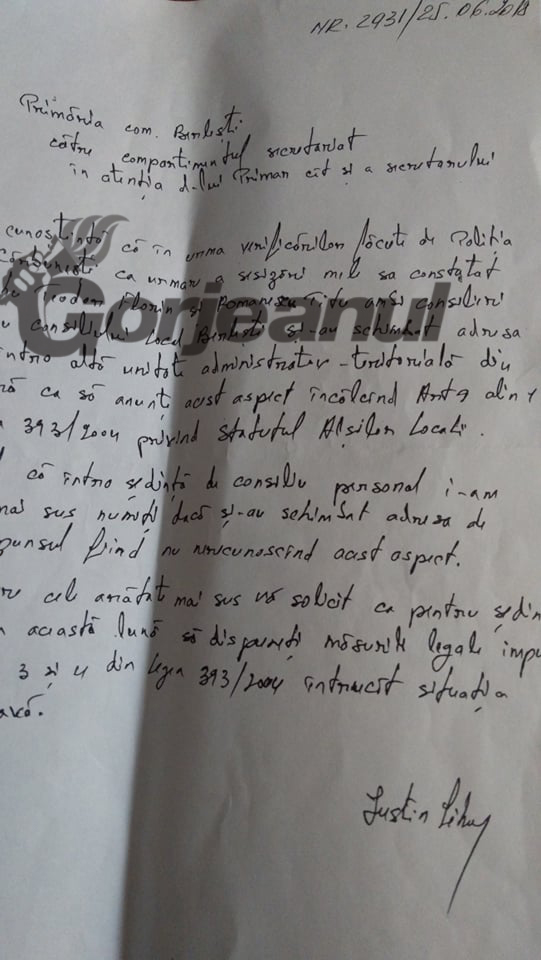 NR. 2931/25.06.2018
Primăria com. Bărbești
către compartimentul secretariat
în atenția d-lui Primar cît și a secretarului
cunoștință că în urma verificărilor făcute de Poliția
ca urmare a sesizări mele sa constatat
Teodor Florin și Romanescu Titu ambi consilieri
consiliului Local și-au schimbat adresa
într-o altă unitate administrativ-teritorială din
ca să anunț acest aspect încălcînd Art 9 alin
393/2004 privind statutul Aleșilor Locali.
că întro ședință de consiliu personal i-am
mai sus numiți dacă și-au schimbat adresa de
fiind nu recunoscînd acest aspect.
cele arătate mai sus vă solicit ca pentru ședin
această lună să dispuneți măsurile legale impu
3 și 4 din legea 393/2004 întrucît situația
Iustin
Gorjeanul